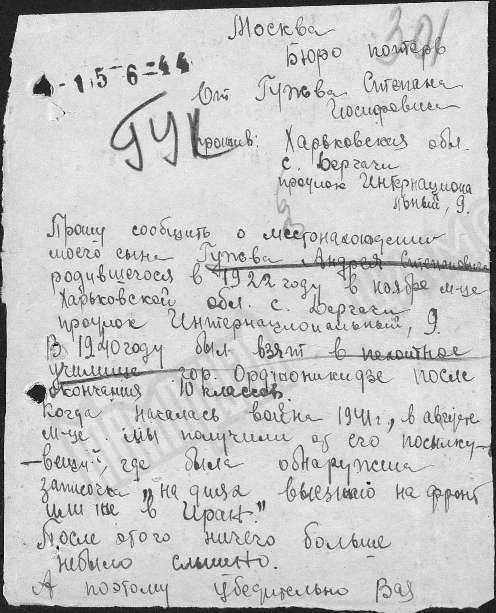 Москва
301
Бюро потерь
- 15 6-44
От Гужва Степана
Иосифовича
ГУК
прожив: Харьковская обл.
с. Дергачи
проулок Интернациона
льный, 9.
Прошу сообщить о местонахождении
моего сына Гужва Андрея Степановича
родившегося в 1922 году в ноябре м-це
Харьковской обл. с. Дергачи
проулок Интернациональный, 9.
В 1940 году был взят в пехотное
училище гор. Орджоникидзе после
окончания 10 классов.
Когда началась война 1941 г., в августе
м-це мы получили от его посылку-
вещи, где была обнаружена
записочка "на днях выезжаю на фронт
или же в Иран."
После этого ничего больше
небыло слышно.
А поэтому убедительно Вас